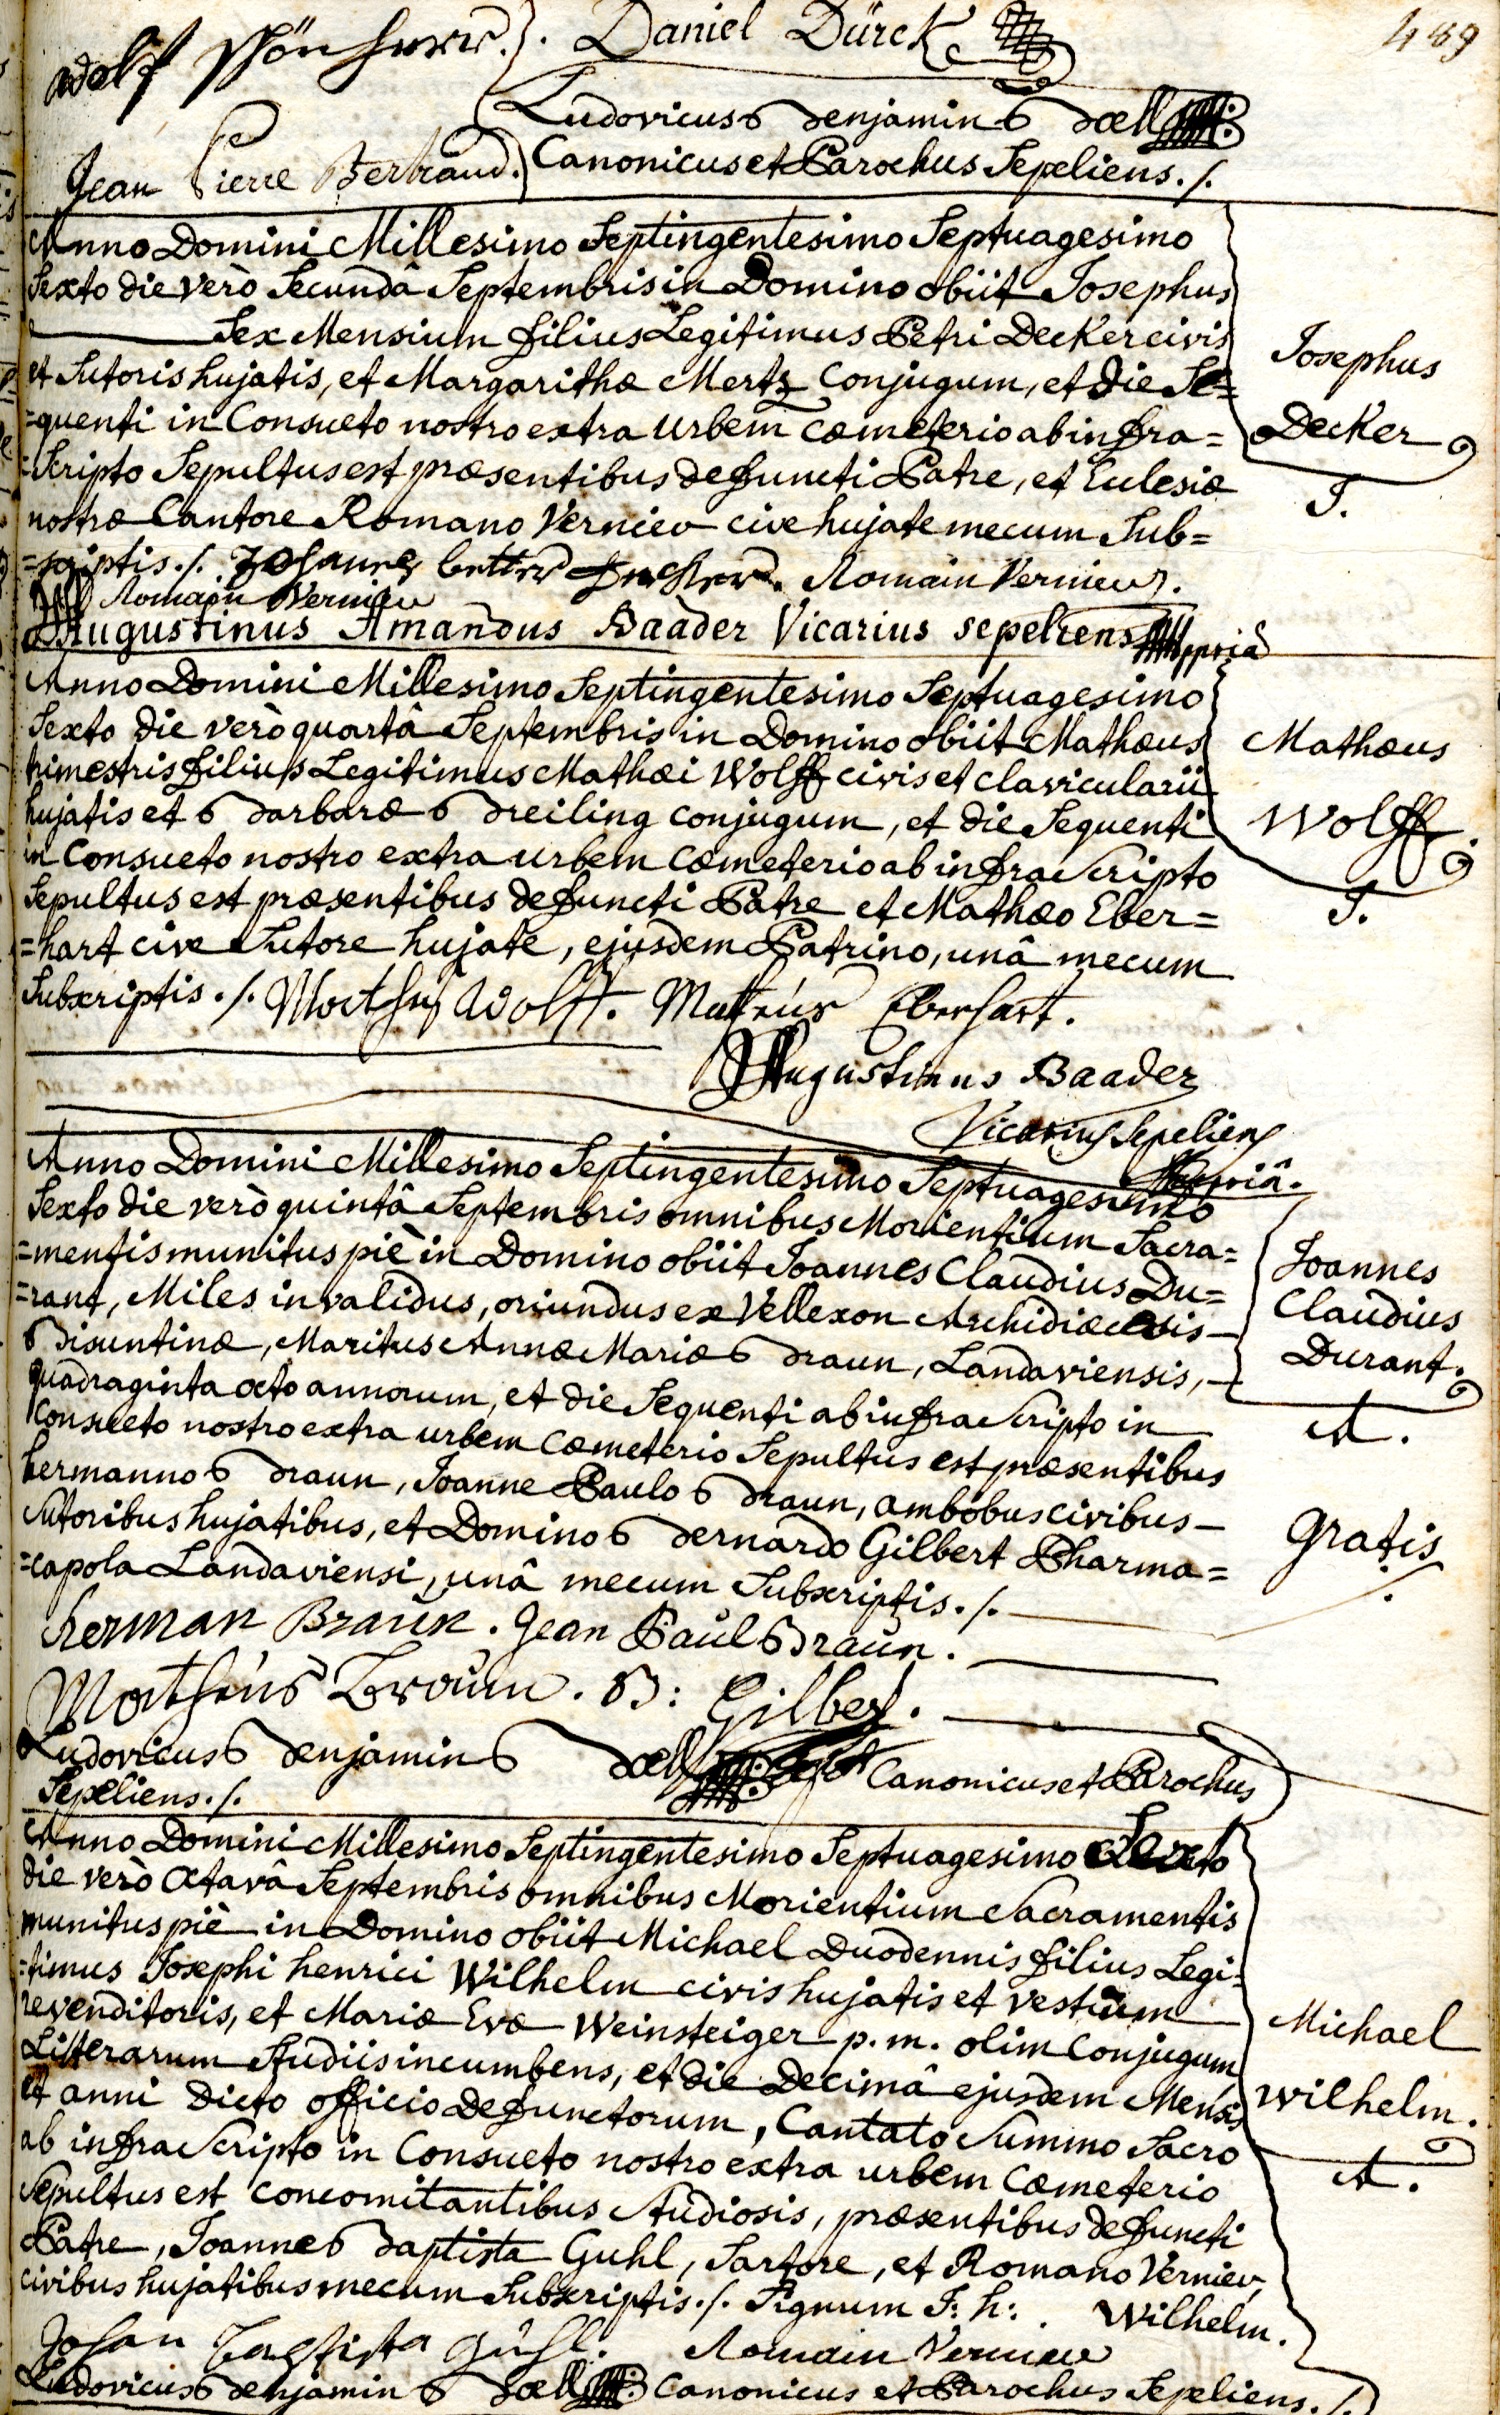 489
Adolf Schönherr. Daniel Dürck
Ludovicus Benjamin Boell
Jean Pierre Bertrand. Canonicus et Parochus Sepeliens./.
Anno Domini Millesimo Septingentesimo Septuagesimo
Sexto die verò Secundâ Septembris in Domino obiit Josephus
Sex Mensium filius Legitimus Petri Decker civis
et Sutoris hujatis, et Margarithæ Mertz Conjugum, et die Se=
=quenti in Consueto nostro extra urbem cœmeterio ab infra=
=Scripto Sepultus est præsentibus defuncti Patre, et Ecclesiæ
nostræ Cantore Romano Verniev cive hujate mecum Sub=
=scriptis./. Johannes Decker. Romain Vernieur.
Romain Verniew
Augustinus Amandus Baader Vicarius sepeliens ppriâ
Josephus
Decker
J.
Anno Domini Millesimo Septingentesimo Septuagesimo
Sexto die verò quartâ Septembris in Domino obiit Mathæus
trimestris filius Legitimus Mathæi Wolff civis et clavicularii
hujatis et Barbaræ Breiling conjugum, et die Sequenti
in Consueto nostro extra urbem Cœmeterio ab infra Scripto
Sepultus est præsentibus defuncti Patre et Mathæo Eber=
=hart cive Sutore hujate, ejusdem Patrino, unâ mecum
Subscriptis./. Mathes Wolff. Matheus Eberhart.
Augustinus Baader
Vicarius Sepeliens
ppriâ.
Mathæus
Wolff.
J.
Anno Domini Millesimo Septingentesimo Septuagesimo
Sexto die verò quintâ Septembris omnibus Morientium Sacra=
=mentis munitus piè in Domino obiit Joannes Claudius Du=
=rant, Miles invalidus, oriundus ex Vellexon Archidiœcesis
Bisuntinæ, Maritus Annæ Mariæ Braun, Landaviensis,
quadraginta octo annorum, et die Sequenti ab infra Scripto in
Consueto nostro extra urbem Cœmeterio Sepultus est præsentibus
hermanno Braun, Joanne Paulo Braun, ambobus civibus
Sutoribus hujatibus, et Domino Bernardo Gilbert Pharma=
=capola Landaviensi, unâ mecum Subscriptis./.
herman Braun. Jean Paul Braun.
Matheus Braun. B: Gilbert.
Ludovicus Benjamin Boell Canonicus et Parochus
Sepeliens./.
Joannes
Claudius
Durant.
A.
Gratis
Anno Domini Millesimo Septingentesimo Septuagesimo Sexto
die verò Octavâ Septembris omnibus Morientium Sacramentis
munitus piè in Domino obiit Michael Duodennis filius Legi=
=timus Josephi henrici Wilhelm civis hujatis et vestium
revenditoris, et Mariæ Evæ Weinsteiger p.m. olim Conjugum
Litterarum Studiis incumbens, et die Decimâ ejusdem Mensis
et anni Dicto officio Defunctorum, Cantato Summo Sacro
ab infra Scripto in Consueto nostro extra urbem Cœmeterio
Sepultus est concomitantibus Studiosis, præsentibus defuncti
Patre, Joanne Baptista Guhl, Sartore, et Romano Verniev,
civibus hujatibus mecum Subscriptis./. Signum J: h: Wilhelm.
Johan Baptista Guhl. Romain Verniew
Ludovicus Benjamin Boell Canonicus et Parochus Sepeliens./.
Michael
Wilhelm.
A.